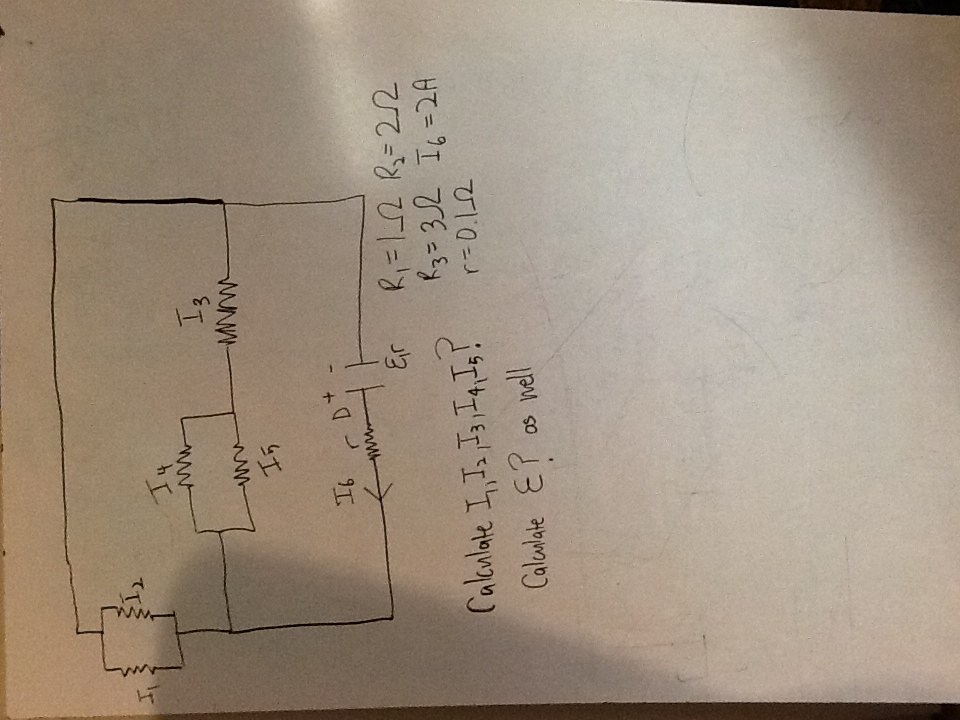 I1
I2
I4
I3
I5
I6 r D + -
ε,r
R1=1Ω R2=2Ω
R3=3Ω I6=2A
r=0.1Ω
Calculate I1,I2,I3,I4,I5?
Calculate ε? as well